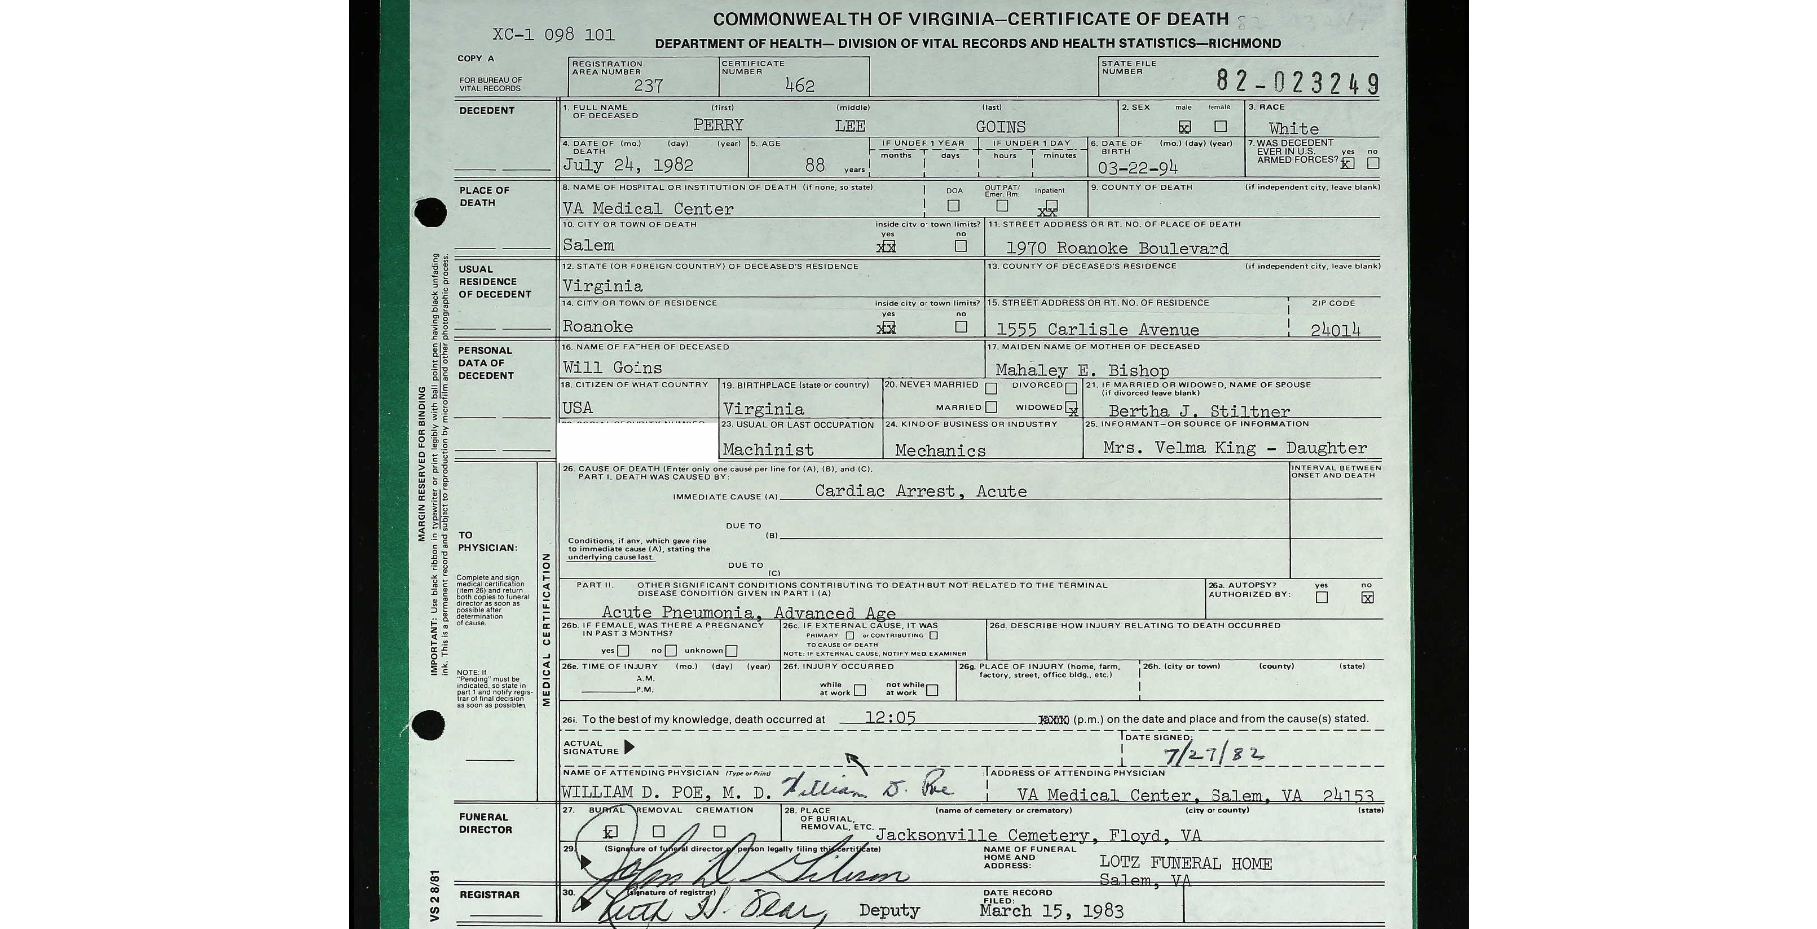 COMMONWEALTH OF VIRGINIA—CERTIFICATE OF DEATH
XC-1 098 101
DEPARTMENT OF HEALTH— DIVISION OF VITAL RECORDS AND HEALTH STATISTICS—RICHMOND
COPY A
FOR BUREAU OF VITAL RECORDS
REGISTRATION AREA NUMBER 237
CERTIFICATE NUMBER 462
STATE FILE NUMBER 82-023249
DECEDENT
1. FULL NAME OF DECEASED (first) (middle) (last)
PERRY LEE GOINS
2. SEX male female
x
3. RACE
White
4. DATE OF DEATH (mo.) (day) (year)
July 24, 1982
5. AGE
88 years
IF UNDER 1 YEAR
months days
IF UNDER 1 DAY
hours minutes
6. DATE OF BIRTH (mo.) (day) (year)
03-22-94
7. WAS DECEDENT EVER IN U.S. ARMED FORCES? yes no
x
PLACE OF DEATH
8. NAME OF HOSPITAL OR INSTITUTION OF DEATH (if none, so state)
VA Medical Center
DOA OUT PAT/ Emer. Rm. Inpatient
xx
9. COUNTY OF DEATH (if independent city, leave blank)
10. CITY OR TOWN OF DEATH inside city or town limits? yes no
Salem xx
11. STREET ADDRESS OR RT. NO. OF PLACE OF DEATH
1970 Roanoke Boulevard
USUAL RESIDENCE OF DECEDENT
12. STATE (OR FOREIGN COUNTRY) OF DECEASED'S RESIDENCE
Virginia
13. COUNTY OF DECEASED'S RESIDENCE (if independent city, leave blank)
14. CITY OR TOWN OF RESIDENCE inside city or town limits? yes no
Roanoke xx
15. STREET ADDRESS OR RT. NO. OF RESIDENCE ZIP CODE
1555 Carlisle Avenue 24014
PERSONAL DATA OF DECEDENT
16. NAME OF FATHER OF DECEASED
Will Goins
17. MAIDEN NAME OF MOTHER OF DECEASED
Mahaley E. Bishop
18. CITIZEN OF WHAT COUNTRY
USA
19. BIRTHPLACE (state or country)
Virginia
20. NEVER MARRIED DIVORCED
MARRIED WIDOWED x
21. IF MARRIED OR WIDOWED, NAME OF SPOUSE (if divorced leave blank)
Bertha J. Stiltner
23. USUAL OR LAST OCCUPATION
Machinist
24. KIND OF BUSINESS OR INDUSTRY
Mechanics
25. INFORMANT—OR SOURCE OF INFORMATION
Mrs. Velma King - Daughter
MARGIN RESERVED FOR BINDING
IMPORTANT: Use black ribbon in typewriter or print legibly with ball point pen having black unfading
ink. This is a permanent record and subject to reproduction by microfilm and other photographic process.
TO PHYSICIAN:
Complete and sign
medical certification
(item 26) and return
both copies to funeral
director as soon as
possible after
determination
of cause.
NOTE: If
"Pending" must be
indicated, so state in
part 1 and notify regis-
trar of final decision
as soon as possible.
MEDICAL CERTIFICATION
26. CAUSE OF DEATH (Enter only one cause per line for (A), (B), and (C).
PART I. DEATH WAS CAUSED BY:
INTERVAL BETWEEN ONSET AND DEATH
IMMEDIATE CAUSE (A) Cardiac Arrest, Acute
DUE TO
(B)
Conditions, if any, which gave rise
to immediate cause (A), stating the
underlying cause last.
DUE TO
(C)
PART II. OTHER SIGNIFICANT CONDITIONS CONTRIBUTING TO DEATH BUT NOT RELATED TO THE TERMINAL
DISEASE CONDITION GIVEN IN PART I (A)
Acute Pneumonia, Advanced Age
26a. AUTOPSY? yes no
AUTHORIZED BY: x
26b. IF FEMALE, WAS THERE A PREGNANCY
IN PAST 3 MONTHS?
yes no unknown
26c. IF EXTERNAL CAUSE, IT WAS
PRIMARY or CONTRIBUTING
TO CAUSE OF DEATH
NOTE: IF EXTERNAL CAUSE, NOTIFY MED. EXAMINER
26d. DESCRIBE HOW INJURY RELATING TO DEATH OCCURRED
26e. TIME OF INJURY (mo.) (day) (year)
A.M.
P.M.
26f. INJURY OCCURRED
while at work not while at work
26g. PLACE OF INJURY (home, farm,
factory, street, office bldg., etc.)
26h. (city or town) (county) (state)
26i. To the best of my knowledge, death occurred at 12:05 (p.m.) on the date and place and from the cause(s) stated.
ACTUAL SIGNATURE
DATE SIGNED:
7/27/82
NAME OF ATTENDING PHYSICIAN (Type or Print)
WILLIAM D. POE, M. D. William D. Poe
ADDRESS OF ATTENDING PHYSICIAN
VA Medical Center, Salem, VA 24153
FUNERAL DIRECTOR
27. BURIAL REMOVAL CREMATION
x
28. PLACE OF BURIAL, REMOVAL, ETC. (name of cemetery or crematory) (city or county) (state)
Jacksonville Cemetery, Floyd, VA
29. (Signature of funeral director or person legally filing this certificate)
NAME OF FUNERAL HOME AND ADDRESS:
LOTZ FUNERAL HOME
Salem, VA
REGISTRAR
30. (signature of registrar)
Deputy
DATE RECORD FILED:
March 15, 1983
VS 2 8/81